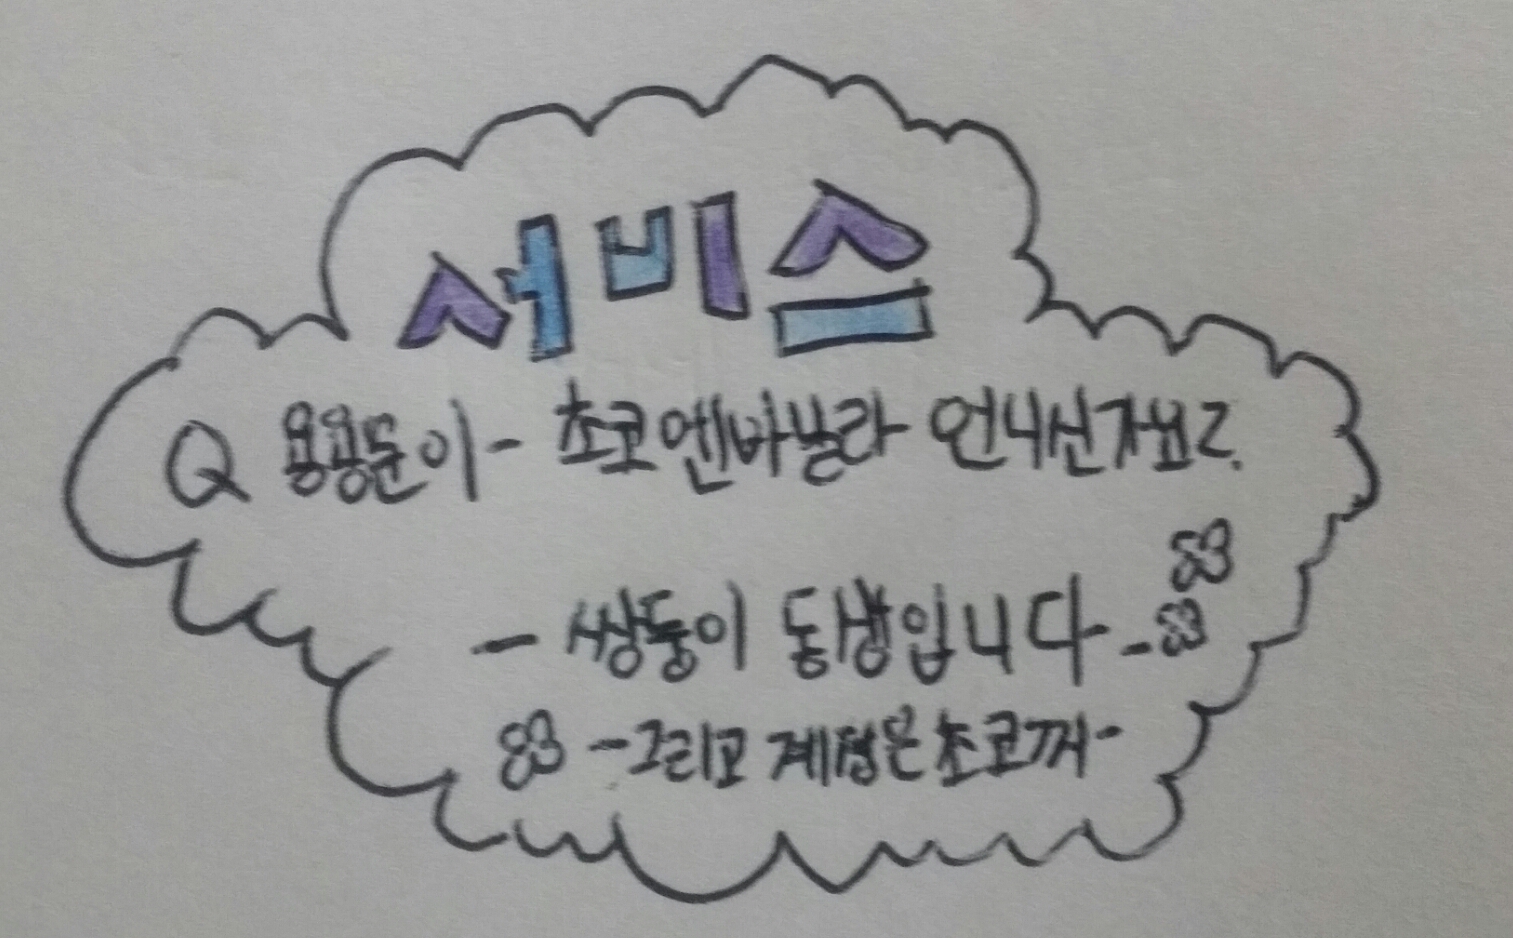 서비스
Q 용용둔이- 초코엔바닐라 언니신가요?
- 쌍둥이 동생입니다-
-그리고 계정은 초코꺼-